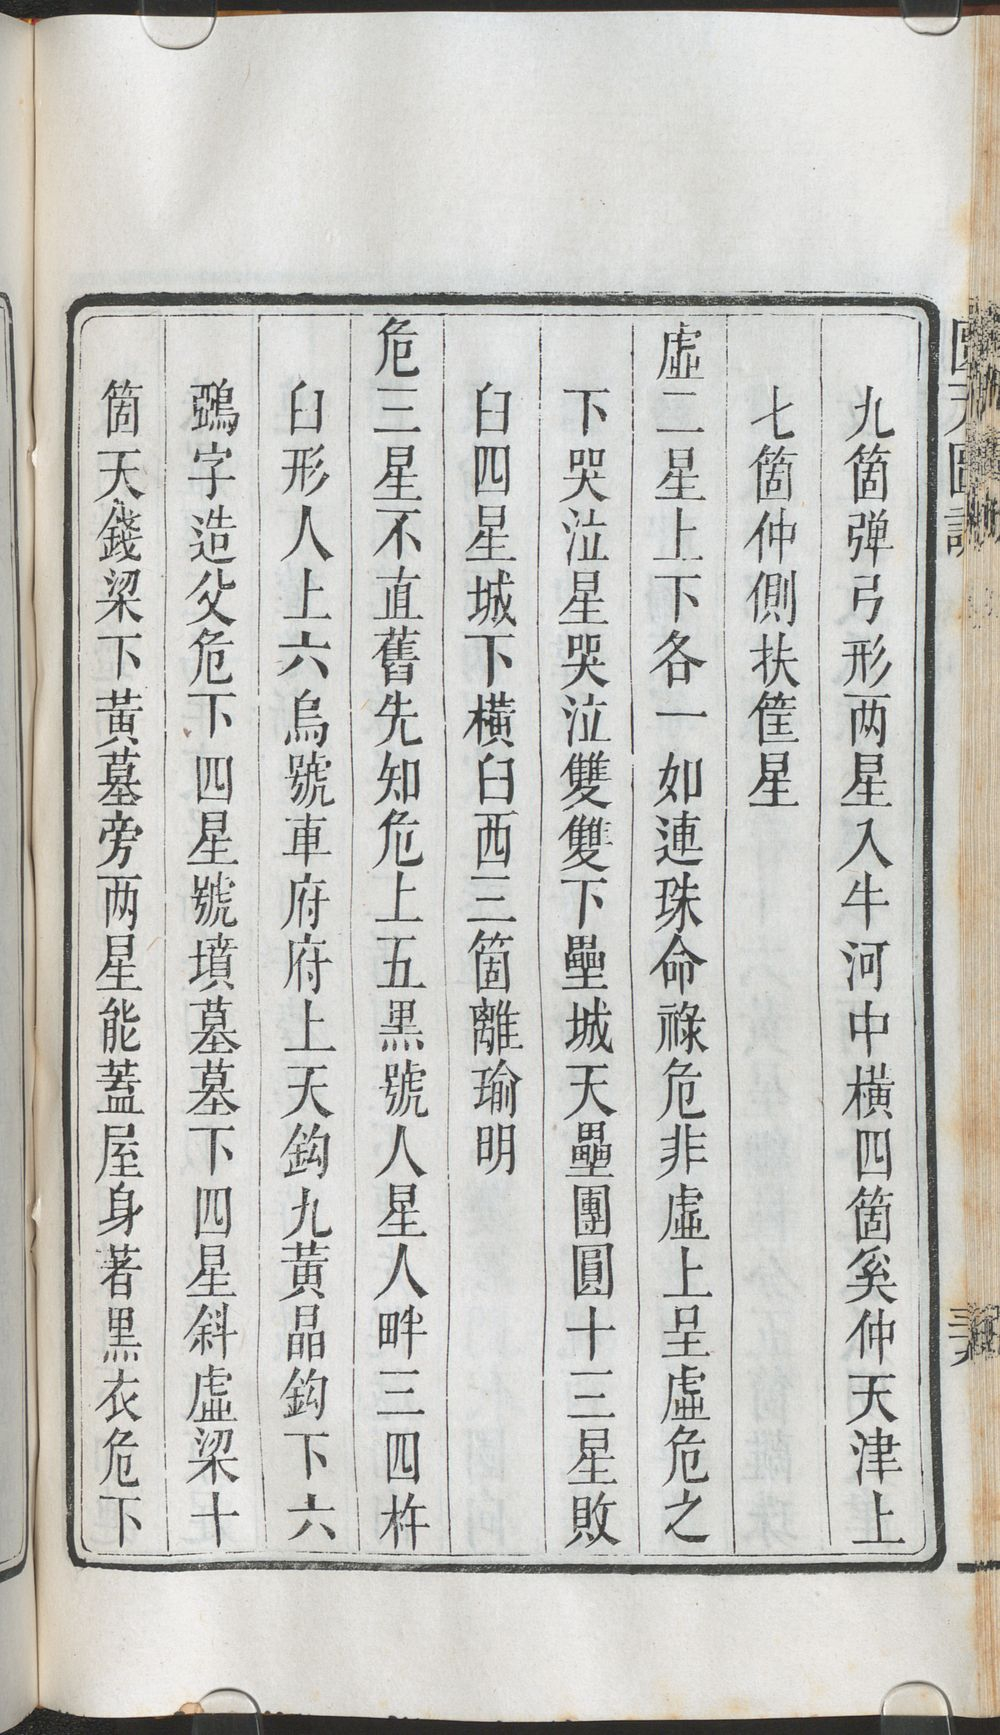 九箇弹弓形两星入牛河中橫四箇奚仲天津上
七箇仲側扶筐星
虛二星上下各一如連珠命祿危非虛上呈虛危之
下哭泣星哭泣雙雙下壘城天壘團圓十三星敗
臼四星城下橫臼西三箇離瑜明
危三星不直舊先知危上五黑號人星人畔三四杵
臼形人上六烏號車府府上天鈎九黃晶鈎下六
鵶字造父危下四星號墳墓墓下四星斜虛梁十
箇天錢梁下黃墓旁两星能蓋屋身著黑衣危下